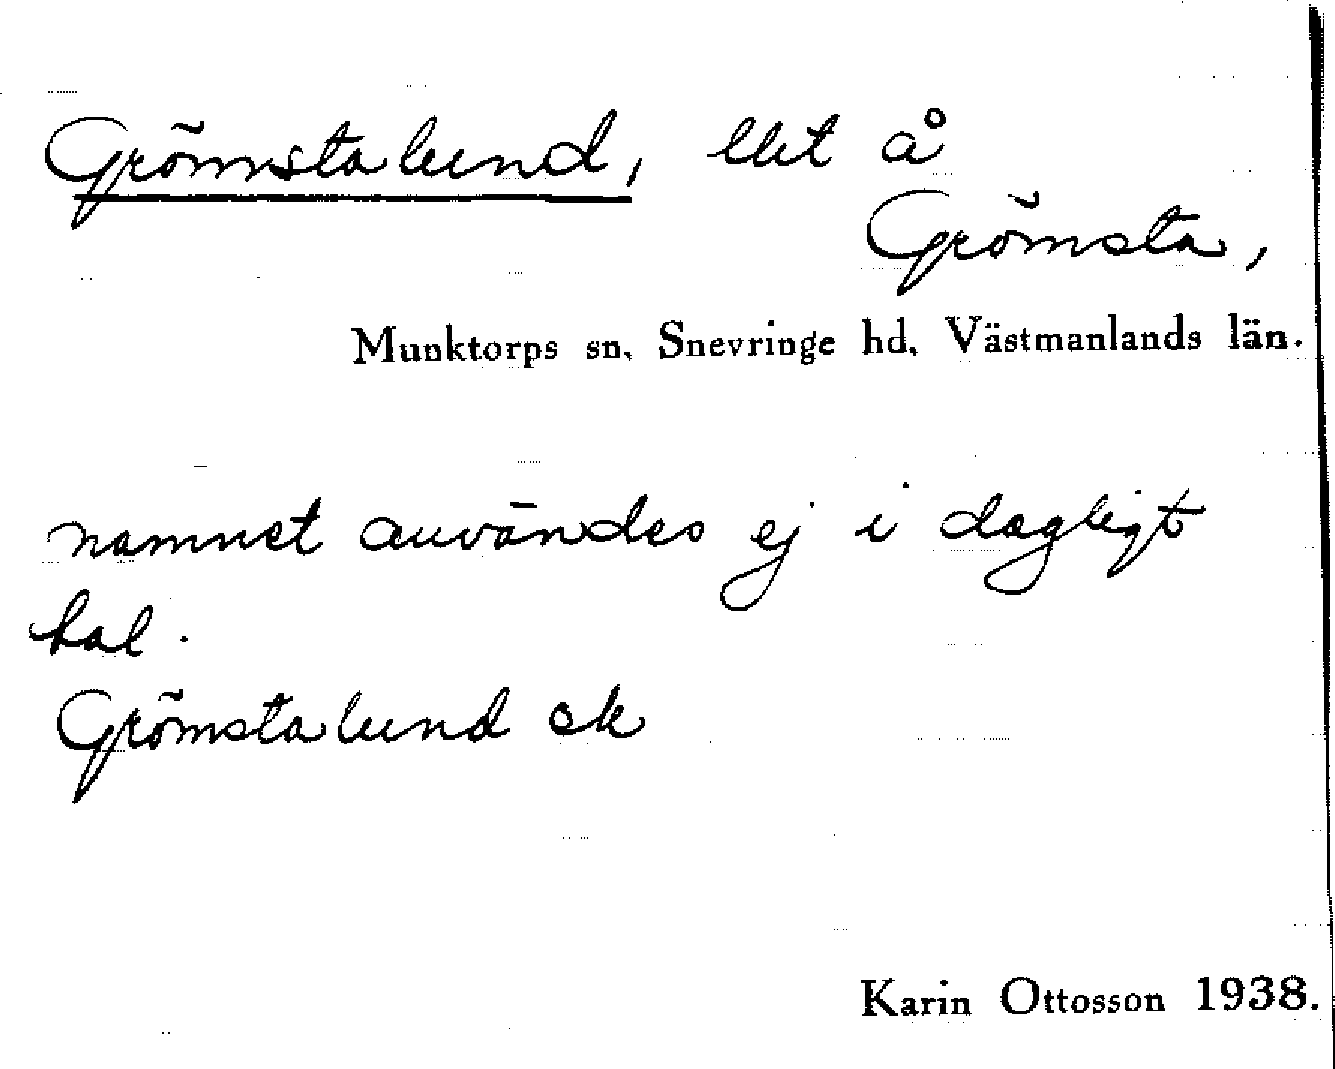 Grömstalund, llet å
Grömsta,
Munktorps sn. Snevringe hd. Västmanlands län.
namnet användes ej i dagligt
tal.
Grömstalund ek
Karin Ottosson 1938.